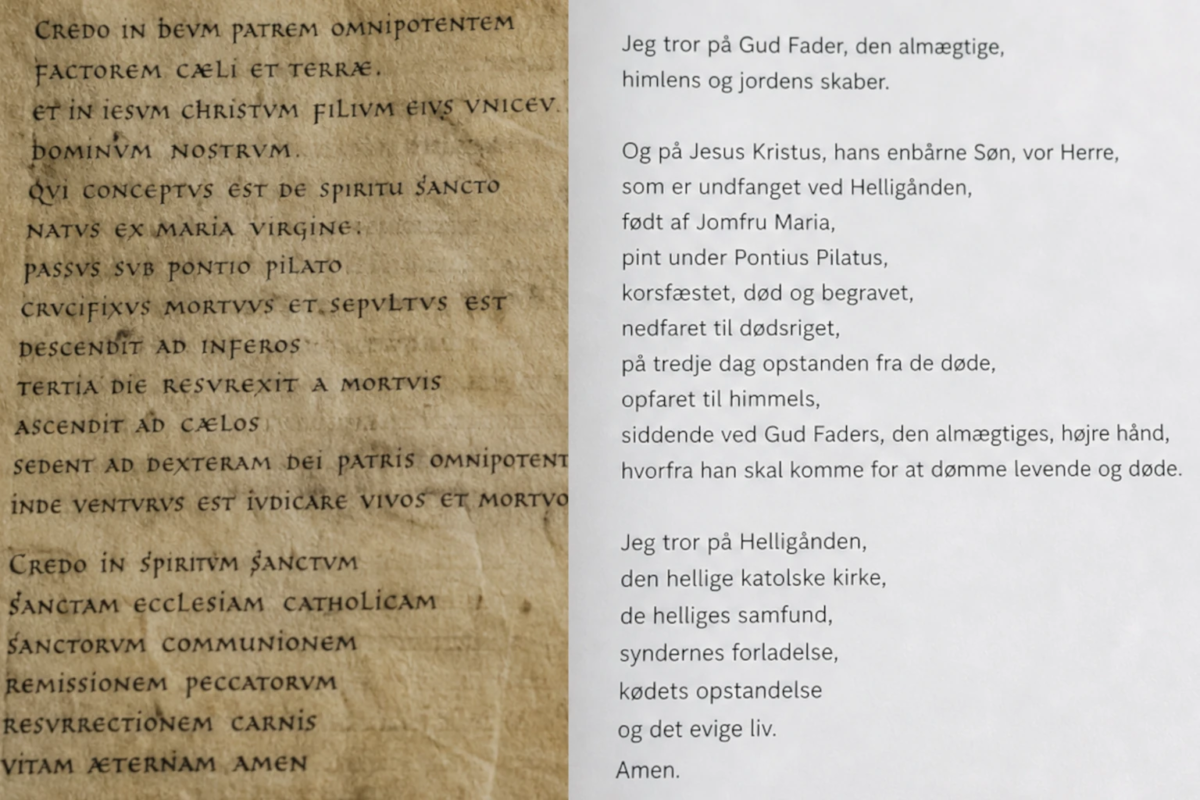 CREDO IN DEVM PATREM OMNIPOTENTEM
FACTOREM CÆLI ET TERRÆ.
ET IN IESVM CHRISTVM FILIVM EIVS VNICEV.
DOMINVM NOSTRVM.
QVI CONCEPTVS EST DE SPIRITU SANCTO
NATVS EX MARIA VIRGINE:
PASSVS SVB PONTIO PILATO
CRVCIFIXVS MORTVVS ET SEPVLTVS EST
DESCENDIT AD INFEROS
TERTIA DIE RESVREXIT A MORTVIS
ASCENDIT AD CÆLOS
SEDENT AD DEXTERAM DEI PATRIS OMNIPOTENT
INDE VENTVRVS EST IVDICARE VIVOS ET MORTVO
CREDO IN SPIRITVM SANCTVM
SANCTAM ECCLESIAM CATHOLICAM
SANCTORVM COMMUNIONEM
REMISSIONEM PECCATORVM
RESVRRECTIONEM CARNIS
VITAM ÆTERNAM AMEN
Jeg tror på Gud Fader, den almægtige,
himlens og jordens skaber.
Og på Jesus Kristus, hans enbårne Søn, vor Herre,
som er undfanget ved Helligånden,
født af Jomfru Maria,
pint under Pontius Pilatus,
korsfæstet, død og begravet,
nedfaret til dødsriget,
på tredje dag opstanden fra de døde,
opfaret til himmels,
siddende ved Gud Faders, den almægtiges, højre hånd,
hvorfra han skal komme for at dømme levende og døde.
Jeg tror på Helligånden,
den hellige katolske kirke,
de helliges samfund,
syndernes forladelse,
kødets opstandelse
og det evige liv.
Amen.